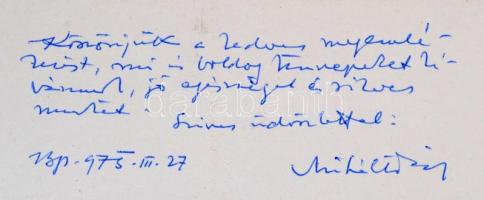 Köszönjük a kedves megemlé-
kezést, mi is boldog ünnepeket kí-
vánunk, jó egészséget és sikeres
munkát.
Szíves üdvözlettel:
Bp. 975. III. 27